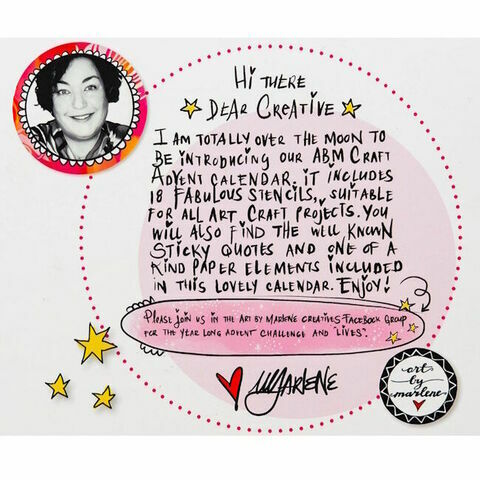 Hi THERE
DEAR CREATIVE
I AM TOTALLY OVER THE MOON TO
BE iNTRODUCING OUR ABM CRAFT
ADVENT CALENDAR. iT iNCLUDES
18 FABULOUS STENCILS, SUITABLE
FOR ALL ART, CRAFT PROJECTS. YOU
WILL ALSO FIND THE WELL KNOWN
STICKY QUOTES AND ONE OF A
KIND PAPER ELEMENTS INCLUDED
IN THIS LOVELY CALENDAR. ENJOY!
PLEASE JOIN US IN THE ART BY MARLENE CREATIVES FACEBOOK GROUP
FOR THE YEAR LONG ADVENT CHALLENGE AND "LIVES".
MARLENE
art
by
marlene